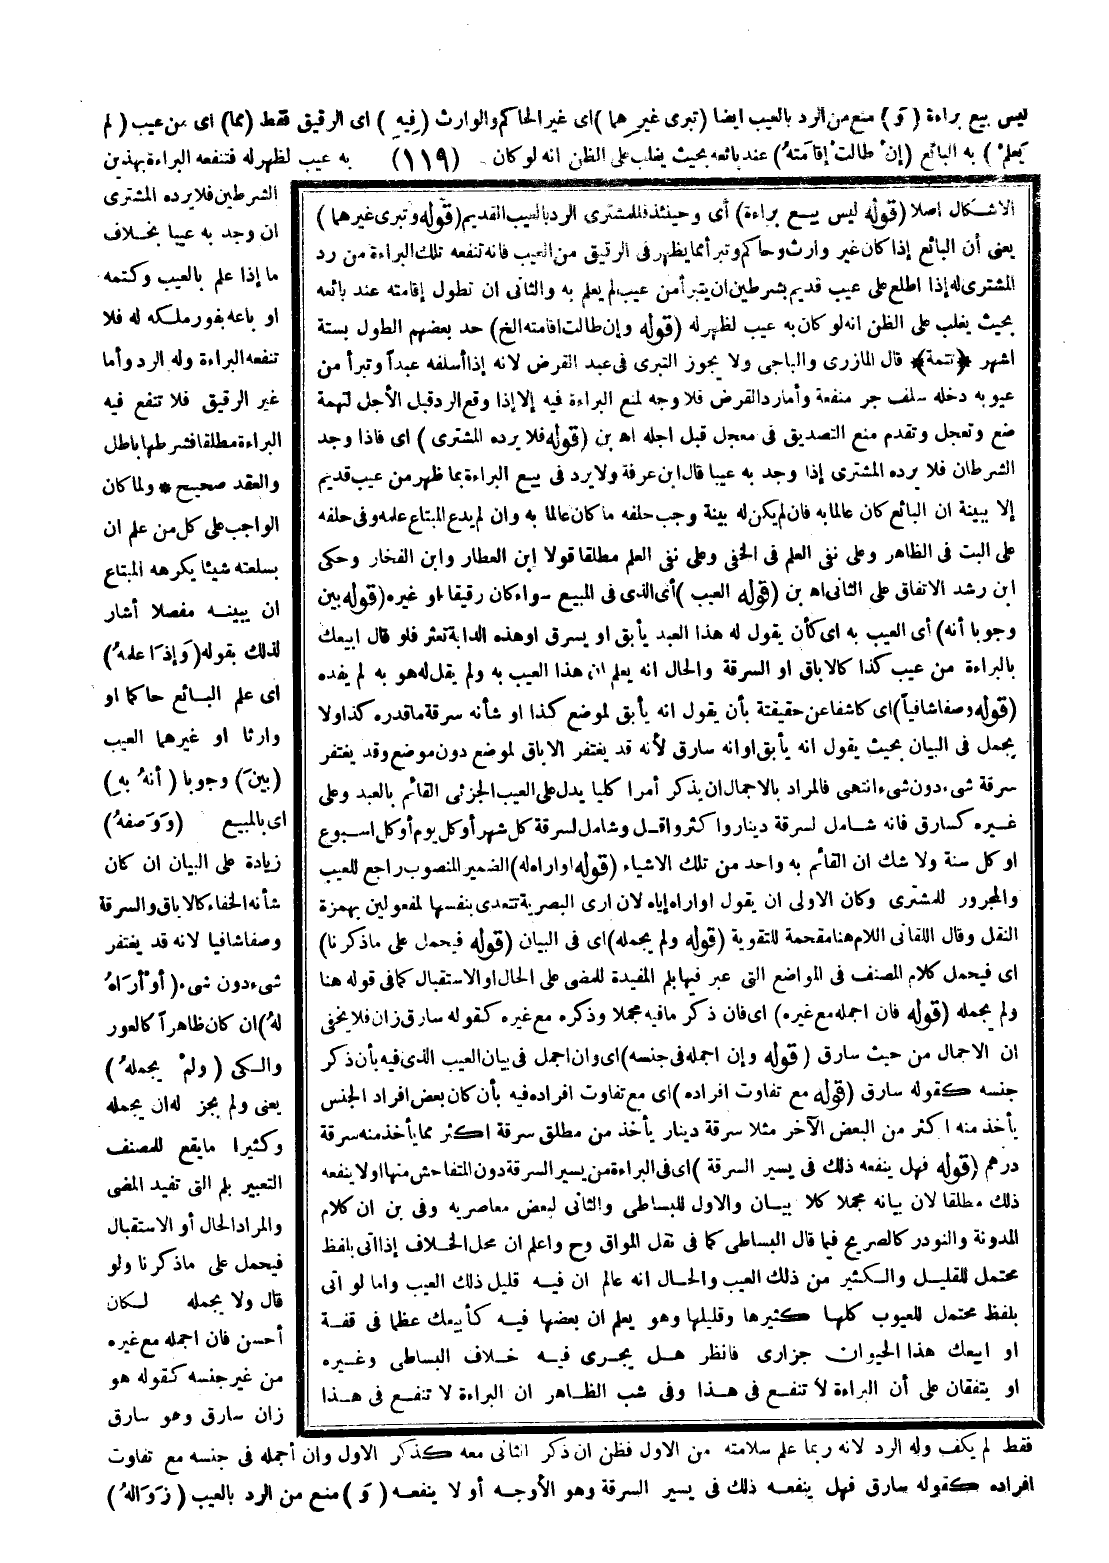 ليس بيع براءة (وَ) منع من الرد بالعيب ايضا (تبرى غيرهما) اى غير الحاكم والوارث (فِيهِ) اى الرقيق فقط (مما) اى من عيب (لم
يَعلمْ) به البائع (إنْ طالتْ إقامَتهُ) عند بائعه بحيث يغلب على الظن انه لو كان (١١٩) به عيب لظهر له فتنفعه البراءة بهذين
الشرطين فلا يرده المشترى
ان وجد به عيبا بخلاف
ما إذا علم بالعيب وكتمه
او باعه بفور ملكه له فلا
تنفعه البراءة وله الرد وأما
غير الرقيق فلا تنفع فيه
البراءة مطلقا فشرطها باطل
والعقد صحيح * ولما كان
الواجب على كل من علم ان
بسلعته شيئا يكرهه المبتاع
ان يبينه مفصلا أشار
لذلك بقوله (وَإذَا علمهُ)
اى علم البائع حاكما او
وارثا او غيرهما العيب
(بينَ) وجوبا (أنهُ بهِ)
اى بالمبيع (وَوَصفهُ)
زيادة على البيان ان كان
شأنه الخفاء كالاباق والسرقة
وصفا شافيا لانه قد يغتفر
شىء دون شىء (أوْ أرَاهُ
لهُ) ان كان ظاهراً كالعور
والكى (ولمْ يجملهُ)
يعنى ولم يجز له ان يجمله
وكثيرا مايقع للمصنف
التعبير بلم التى تفيد المضى
والمراد الحال أو الاستقبال
فيحمل على ماذكرنا ولو
قال ولا يجمله لكان
أحسن فان اجمله مع غيره
من غير جنسه كقوله هو
زان سارق وهو سارق
فقط لم يكف وله الرد لانه ربما علم سلامته من الاول فظن ان ذكر الثانى معه كذكر الاول وان أجمله فى جنسه مع تفاوت
افراده كقوله سارق فهل ينفعه ذلك فى يسير السرقة وهو الأوجه أو لا ينفعه (وَ) منع من الرد بالعيب (زَوَالهُ)
الاشكال اصلا (قوله ليس ببيع براءة) أى وحينئذ فللمشترى الرد بالعيب القديم (قوله وتبرى غيرهما)
يعنى أن البائع إذا كان غير وارث وحاكم وتبرأ مما يظهر فى الرقيق من العيب فانه تنفعه تلك البراءة من رد
المشترى له إذا اطلع على عيب قديم بشرطين ان يتبرأ من عيب لم يعلم به والثانى ان تطول إقامته عند بائعه
بحيث يغلب على الظن انه لو كان به عيب لظهر له (قوله وإن طالت اقامته الخ) حد بعضهم الطول بستة
اشهر ﴿تتمة﴾ قال المازرى والباجى ولا يجوز التبرى فى عبد القرض لانه إذا أسلفه عبداً وتبرأ من
عيوبه دخله سلف جر منفعة وأما رد القرض فلا وجه لمنع البراءة فيه إلا إذا وقع الرد قبل الأجل لتهمة
ضع وتعجل وتقدم منع التصديق فى معجل قبل اجله اه بن (قوله فلا يرده المشترى) اى فاذا وجد
الشرطان فلا يرده المشترى إذا وجد به عيبا قال ابن عرفة ولا يرد فى بيع البراءة بما ظهر من عيب قديم
إلا ببينة ان البائع كان عالما به فان لم يكن له بينة وجب حلفه ما كان عالما به وان لم يدع المبتاع علمه وفى حلفه
على البت فى الظاهر وعلى نفى العلم فى الخفى وعلى نفى العلم مطلقا قولا ابن العطار وابن الفخار وحكى
ابن رشد الاتفاق على الثانى اه بن (قوله العيب) أى الذى فى المبيع سواء كان رقيقا او غيره (قوله بين
وجوبا أنه) أى العيب به اى كأن يقول له هذا العبد يأبق او يسرق او هذه الدابة تعثر فلو قال ابيعك
بالبراءة من عيب كذا كالاباق او السرقة والحال انه يعلم ان هذا العيب به ولم يقل له هو به لم يفده
(قوله وصفا شافياً) اى كاشفا عن حقيقتة بأن يقول انه يأبق لموضع كذا او شأنه سرقة ماقدره كذا ولا
يجمل فى البيان بحيث يقول انه يأبق او انه سارق لأنه قد يغتفر الاباق لموضع دون موضع وقد يغتفر
سرقة شىء دون شىء انتهى فالمراد بالاجمال ان يذكر أمرا كليا يدل على العيب الجزئى القائم بالعبد وعلى
غيره كسارق فانه شامل لسرقة دينار واكثر واقل وشامل لسرقة كل شهر أو كل يوم أو كل اسبوع
او كل سنة ولا شك ان القائم به واحد من تلك الاشياء (قوله او اراه له) الضمير المنصوب راجع للعيب
والمجرور للمشترى وكان الاولى ان يقول او اراه إياه لان ارى البصرية تتعدى بنفسها لمفعولين بهمزة
النقل وقال اللقانى اللام هنا مقحمة للتقوية (قوله ولم يجمله) اى فى البيان (قوله فيحمل على ماذكرنا)
اى فيحمل كلام المصنف فى المواضع التى عبر فيها بلم المفيدة للمضى على الحال او الاستقبال كما فى قوله هنا
ولم يجمله (قوله فان اجمله مع غيره) اى فان ذكر مافيه مجملا وذكره مع غيره كقوله سارق زان فلا يخفى
ان الاجمال من حيث سارق (قوله وإن اجمله فى جنسه) اى وان اجمل فى بيان العيب الذى فيه بأن ذكر
جنسه كقوله سارق (قوله مع تفاوت افراده) اى مع تفاوت افراده فيه بأن كان بعض افراد الجنس
يأخذ منه اكثر من البعض الآخر مثلا سرقة دينار يأخذ من مطلق سرقة اكثر مما يأخذ منه سرقة
درهم (قوله فهل ينفعه ذلك فى يسير السرقة) اى فى البراءة من يسير السرقة دون المتفاحش منها او لا ينفعه
ذلك مطلقا لان بيانه مجملا كلا بيان والاول للبساطى والثانى لبعض معاصريه وفى بن ان كلام
المدونة والنودر كالصريح فيما قال البساطى كما فى نقل المواق وح واعلم ان محل الخلاف إذا اتى بلفظ
محتمل للقليل والكثير من ذلك العيب والحال انه عالم ان فيه قليل ذلك العيب واما لو اتى
بلفظ محتمل للعيوب كلها كثيرها وقليلها وهو يعلم ان بعضها فيه كأبيعك عظما فى قفة
او ابيعك هذا الحيوان جزارى فانظر هل يجرى فيه خلاف البساطى وغيره
او يتفقان على أن البراءة لا تنفع فى هذا وفى شب الظاهر ان البراءة لا تنفع فى هذا